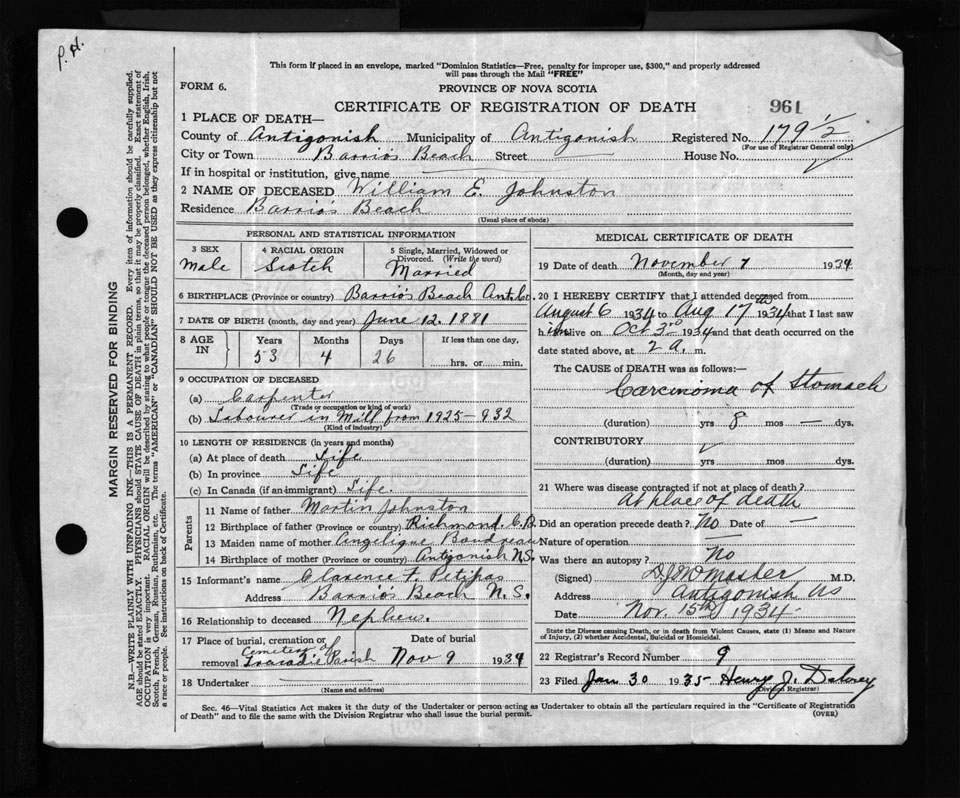 P.H.
This form if placed in an envelope, marked "Dominion Statistics—Free, penalty for improper use, $300," and properly addressed
will pass through the Mail "FREE"
FORM 6.
PROVINCE OF NOVA SCOTIA
CERTIFICATE OF REGISTRATION OF DEATH
961
1 PLACE OF DEATH—
County of Antigonish Municipality of Antigonish Registered No. 179½
(For use of Registrar General only)
City or Town Barrio's Beach Street — House No.
If in hospital or institution, give name
2 NAME OF DECEASED William E. Johnston
Residence Barrio's Beach
(Usual place of abode)
PERSONAL AND STATISTICAL INFORMATION
3 SEX 4 RACIAL ORIGIN 5 Single, Married, Widowed or
Divorced. (Write the word)
Male Scotch Married
6 BIRTHPLACE (Province or country) Barrio's Beach Ant. Co.
7 DATE OF BIRTH (month, day and year) June 12. 1881
8 AGE IN Years Months Days If less than one day,
53 4 26 hrs. or min.
9 OCCUPATION OF DECEASED
(a) Carpenter
(Trade or occupation or kind of work)
(b) Labourer in Mill from 1925-932
(Kind of industry)
10 LENGTH OF RESIDENCE (in years and months)
(a) At place of death Life
(b) In province Life
(c) In Canada (if an immigrant) Life.
Parents
11 Name of father Martin Johnston
12 Birthplace of father (Province or country) Richmond. C.B.
13 Maiden name of mother Angelique Boudreau
14 Birthplace of mother (Province or country) Antigonish N.S.
15 Informant's name Clarence F. Petipas
Address Barrio's Beach N.S.
16 Relationship to deceased Nephew.
17 Place of burial, cremation or Date of burial
Cemetery of
removal Tracadie Parish Nov 9 1934
18 Undertaker
(Name and address)
MEDICAL CERTIFICATE OF DEATH
19 Date of death November 7 1934
(Month, day and year)
20 I HEREBY CERTIFY that I attended deceased from
August 6 1934 to Aug 17th 1934 that I last saw
him alive on Oct 3rd 1934 and that death occurred on the
date stated above, at 2 a. m.
The CAUSE OF DEATH was as follows:—
Carcinoma of Stomach
(duration) yrs 8 mos — dys.
CONTRIBUTORY
(duration) yrs mos dys.
21 Where was disease contracted if not at place of death?
At place of death
Did an operation precede death? No Date of —
Nature of operation —
Was there an autopsy? No
(Signed) M.D.
Address Antigonish NS
Date Nov. 15th 1934
State the Disease causing Death, or in death from Violent Causes, state (1) Means and Nature
of Injury, (2) whether Accidental, Suicidal or Homicidal.
22 Registrar's Record Number 9
23 Filed Jan 30 1935 Henry J.
(Division Registrar)
Sec. 46—Vital Statistics Act makes it the duty of the Undertaker or person acting as Undertaker to obtain all the particulars required in the "Certificate of Registration
of Death" and to file the same with the Division Registrar who shall issue the burial permit.
(OVER)
MARGIN RESERVED FOR BINDING
N.B.—WRITE PLAINLY WITH UNFADING INK—THIS IS A PERMANENT RECORD. Every item of information should be carefully supplied.
AGE should be stated EXACTLY. PHYSICIANS should STATE CAUSE OF DEATH in plain terms, so that it may be properly classified. Exact statement of
OCCUPATION is very important. RACIAL ORIGIN will be described by stating to what people or tongue the deceased person belonged, whether English, Irish,
Scotch, French, German, Russian, Ruthenian, etc. The terms "AMERICAN" or "CANADIAN" SHOULD NOT BE USED as they express citizenship but not
a race or people. See instructions on back of Certificate.